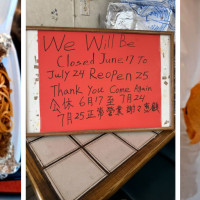 We Will Be
Closed June 17 To
July 24 Reopen 25
Thank You Come Again
今休 6月17至 7月24
7月25正常營業 謝々惠顧